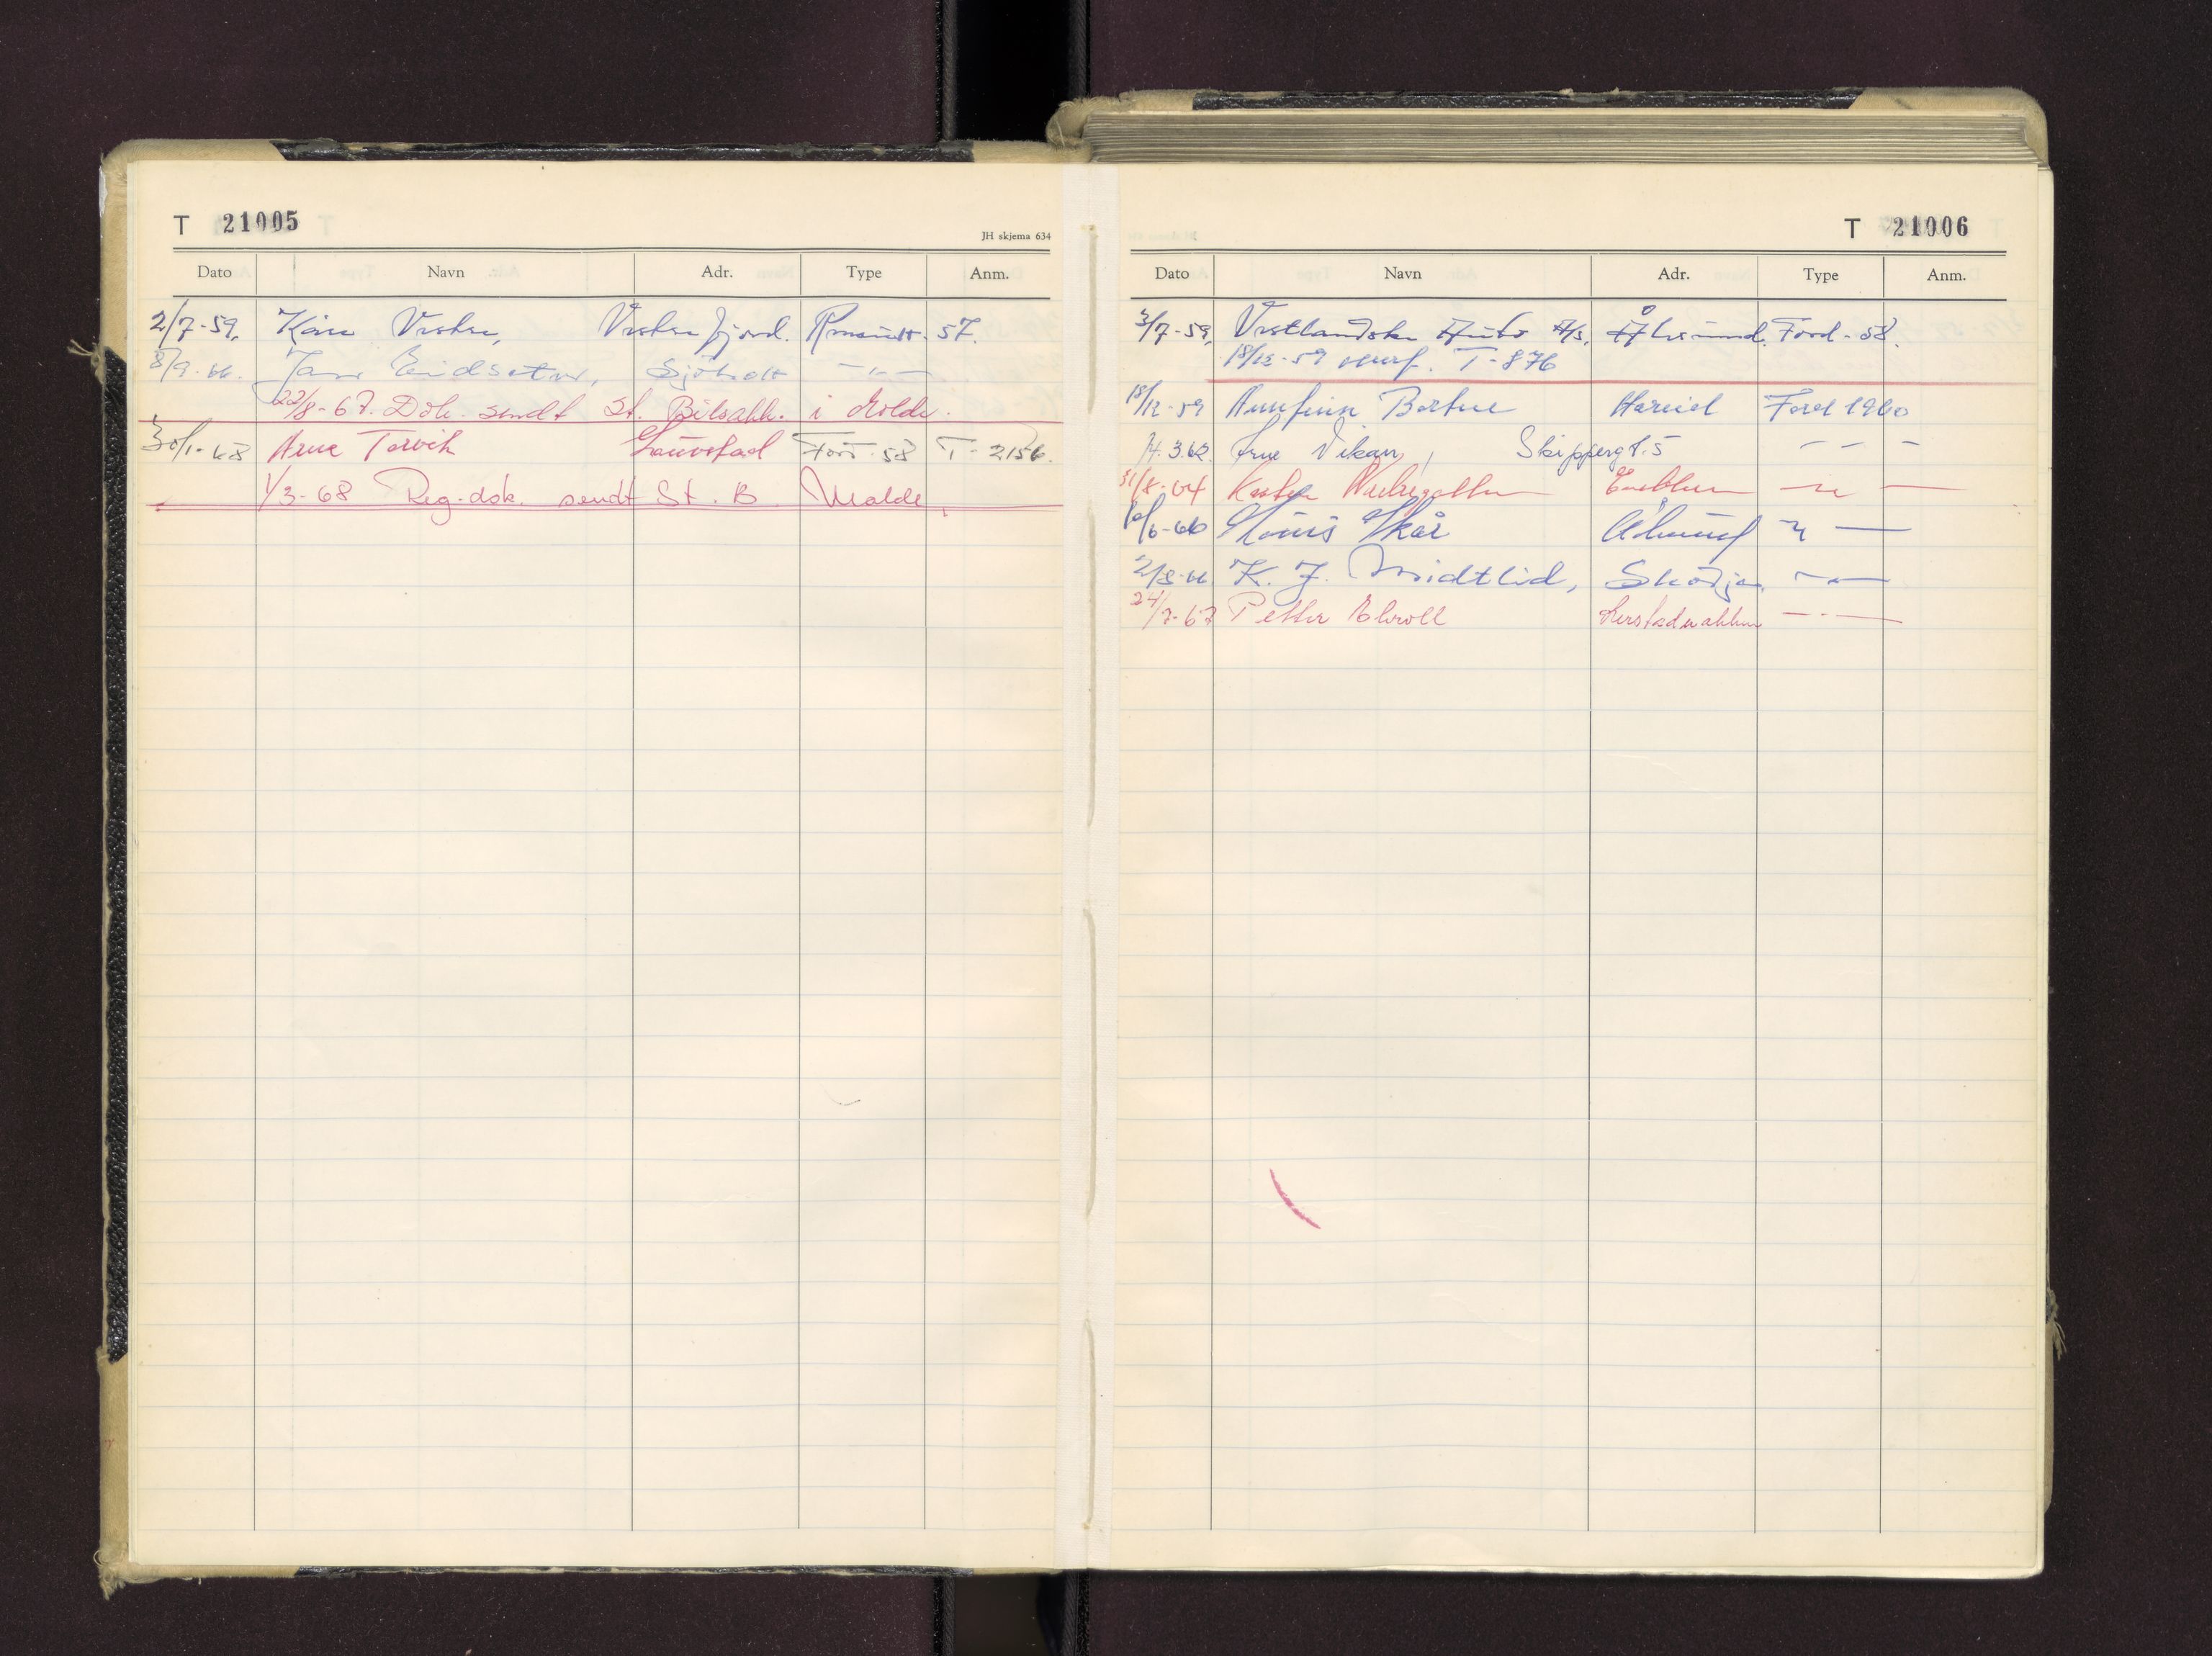 T 21005
JH skjema 634
Dato Navn Adr. Type Anm.
2/7-59. Kåre Vestre, Vestrefjord. 57.
8/9-66. Jan Eidsætre, Sjøholt -"-
22/8-67. Dok. sendt St. Bilsakk. i Molde.
30/1-68 Arne Tarvik Lauvstad Ford-58 T-2156.
1/3-68 Reg.dok. sendt St. B Molde
T 21006
Dato Navn Adr. Type Anm.
3/7-59, Vestlandske Auto A/S, Ålesund. Ford-58.
18/12-59 T-876
18/12-59 Annfinn Hareid Ford 1960
3.62. Arne Vikan, Skippergt. 5 - - -
31/8-64 Emblem -"-
6-66 Skår Ålesund -"-
2/8-66 K. J. Midtlid, Skodje -"-
24/7-67 Petter -"-